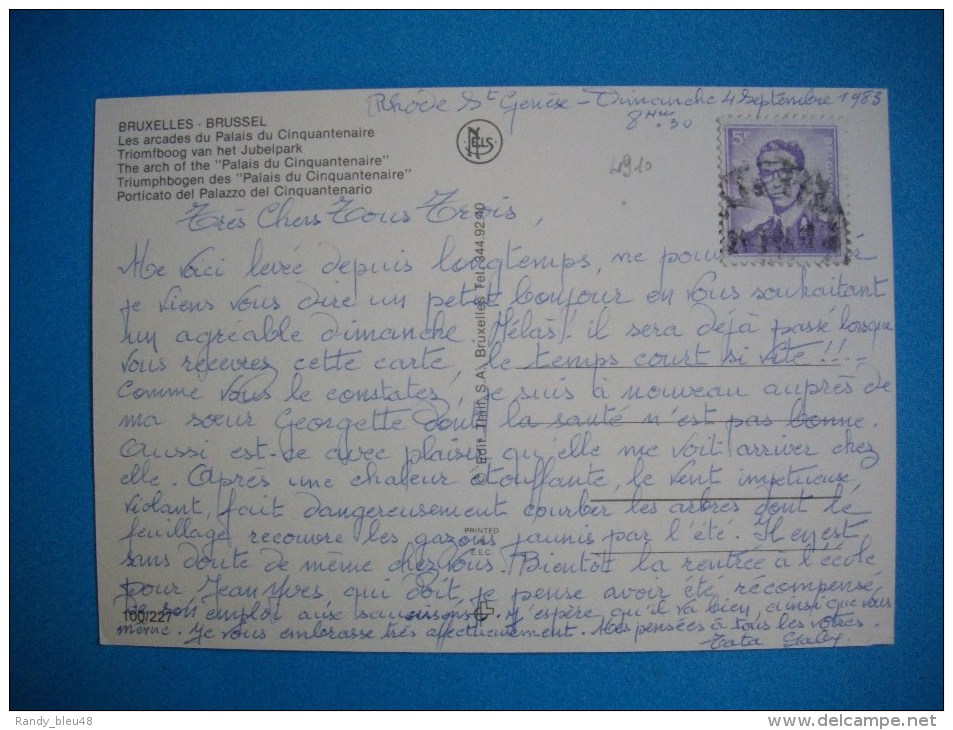 Rhôde St Genèse - Dimanche 4 Septembre 1983
8 Hres 30
BRUXELLES - BRUSSEL
Les arcades du Palais du Cinquantenaire
Triomfboog van het Jubelpark
The arch of the "Palais du Cinquantenaire"
Triumphbogen des "Palais du Cinquantenaire"
Porticato del Palazzo del Cinquantenario
NELS
4910
5F
Très Chers Tous Trois,
Me voici levée depuis longtemps, ne
je viens vous dire un petit bonjour en vous souhaitant
un agréable dimanche. Hélas! il sera déjà passé lorsque
vous recevrez cette carte, le temps court si vite!!!
Comme vous le constatez, je suis à nouveau auprès de
ma sœur Georgette dont la santé n'est pas bonne.
Aussi est-ce avec plaisir qu'elle me voit arriver chez
elle. Après une chaleur étouffante, le vent impétueux,
violant, fait dangereusement courber les arbres dont le
feuillage recouvre les gazons jaunis par l'été. Il en est
sans doute de même chez vous. Bientôt la rentrée à l'école
pour Jean Yves qui doit, je pense avoir été récompensé
de son emploi aux saucissons. J'espère qu'il va bien, ainsi que vous
même. Je vous embrasse très affectueusement. Mes pensées à tous les vôtres.
Tata Gaby
© Edit. Thill, S.A. Bruxelles Tel. 344.92.40
PRINTED
IN
E.E.C.
100/227
Randy_bleu48
www.delcampe.net